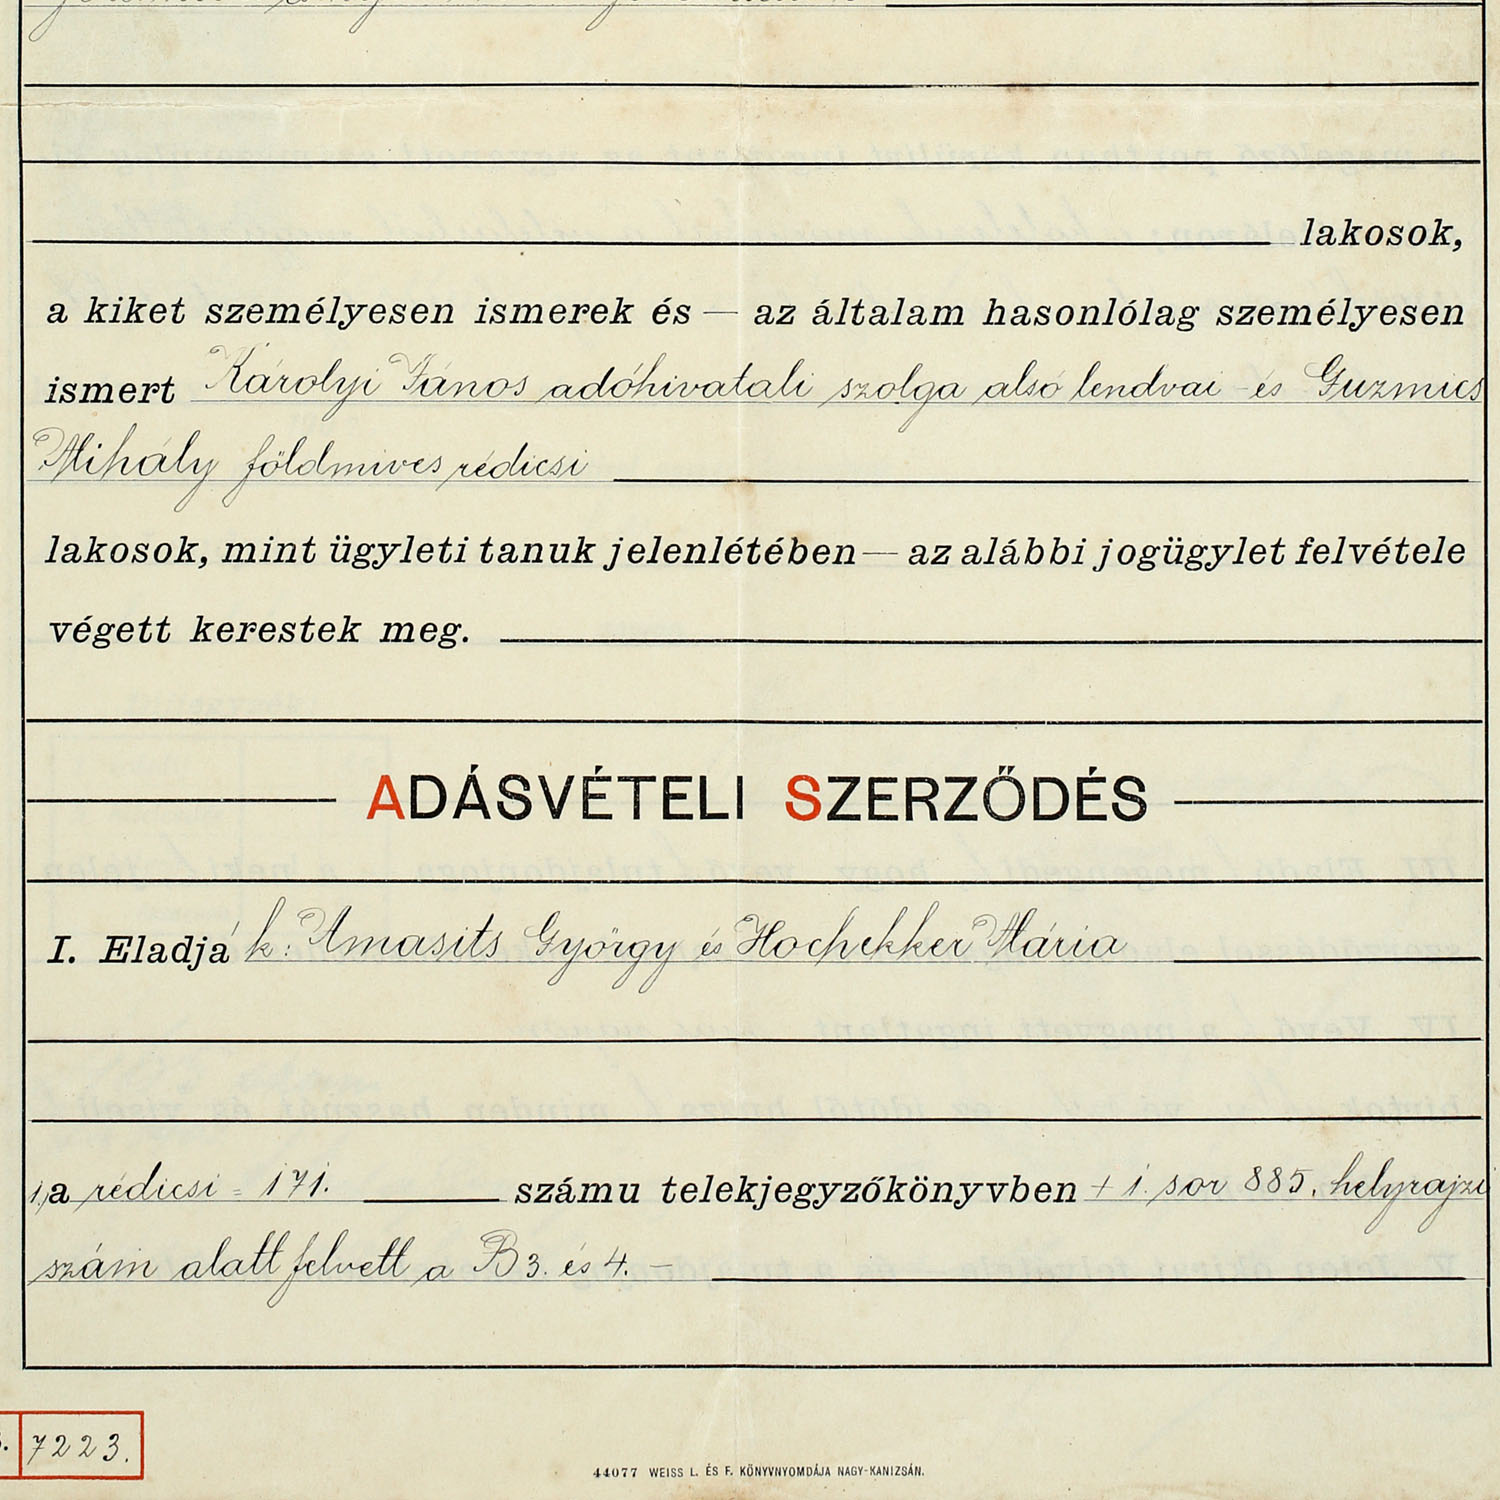 lakosok,
a kiket személyesen ismerek és — az általam hasonlólag személyesen
ismert Károlyi János adóhivatali szolga alsó lendvai - és Guzmics
Mihály földmives rédicsi
lakosok, mint ügyleti tanuk jelenlétében — az alábbi jogügylet felvétele
végett kerestek meg.
ADÁSVÉTELI SZERZŐDÉS
I. Eladják: Amasits György és Hochekker Mária
1., a rédicsi = 171. számu telekjegyzőkönyvben + 1. sor 885. helyrajzi
szám alatt felvett a B 3. és 4. —
7223.
44077 WEISS L. ÉS F. KÖNYVNYOMDÁJA NAGY-KANIZSÁN.